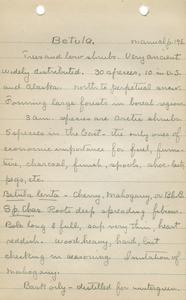 Betula. manual p. 196
Trees and low shrubs. Very ancient
widely distributed. 30 species, 10 in U.S.
and Alaska. north to perpetual snow.
Forming large forests in boreal region.
3 am. species are Arctic shrubs
5 species in the East - the only ones of
economic importance for fuel, furni-
ture, charcoal, finish, spools, shoe-lasts
pegs, etc.
Betula lenta - Cherry, Mahogany, or Bl. B.
Sp. Char. Roots deep spreading fibrous.
Bole long & full, sap very thin, heart
reddish. Wood heavy, hard, but
checking in seasoning. Imitation of
Mahogany.
Bark oily - distilled for wintergreen.